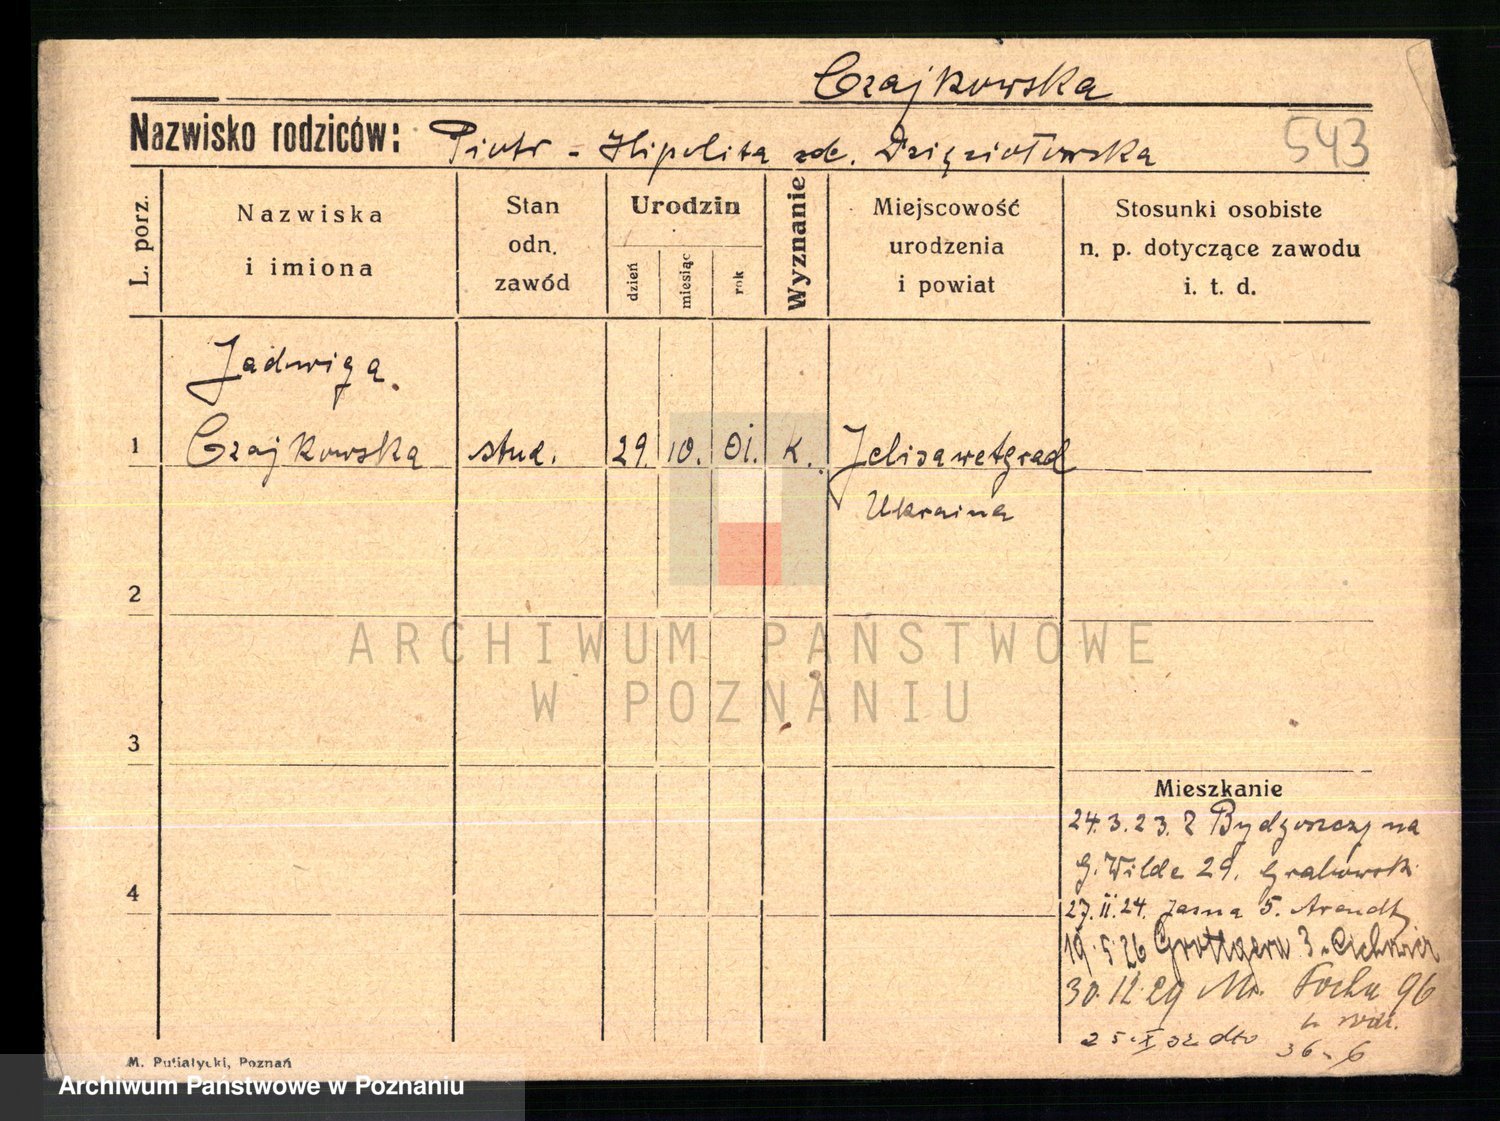 Czajkowska
Nazwisko rodziców: Piotr - Hipolita zd. Dzięziołowska 543
L. porz.
Nazwiska
i imiona
Stan
odn.
zawód
Urodzin
dzień
miesiąc
rok
Wyznanie
Miejscowość
urodzenia
i powiat
Stosunki osobiste
n. p. dotyczące zawodu
i. t. d.
Jadwiga
1 Czajkowska stud. 29. 10. 01. k. Jelisawetgrad
Ukraina
2
3
4
ARCHIWUM PAŃSTWOWE
W POZNANIU
Mieszkanie
24.3.23. z Bydgoszczy na
G. Wilda 29. Grabowski
27.II.24. Jasna 5. Arendt
19.5.26 Grottgera 3
30.12.29 M. Focha 96
25.X 32 dto
36 - 6
M. Putiatycki, Poznań
Archiwum Państwowe w Poznaniu